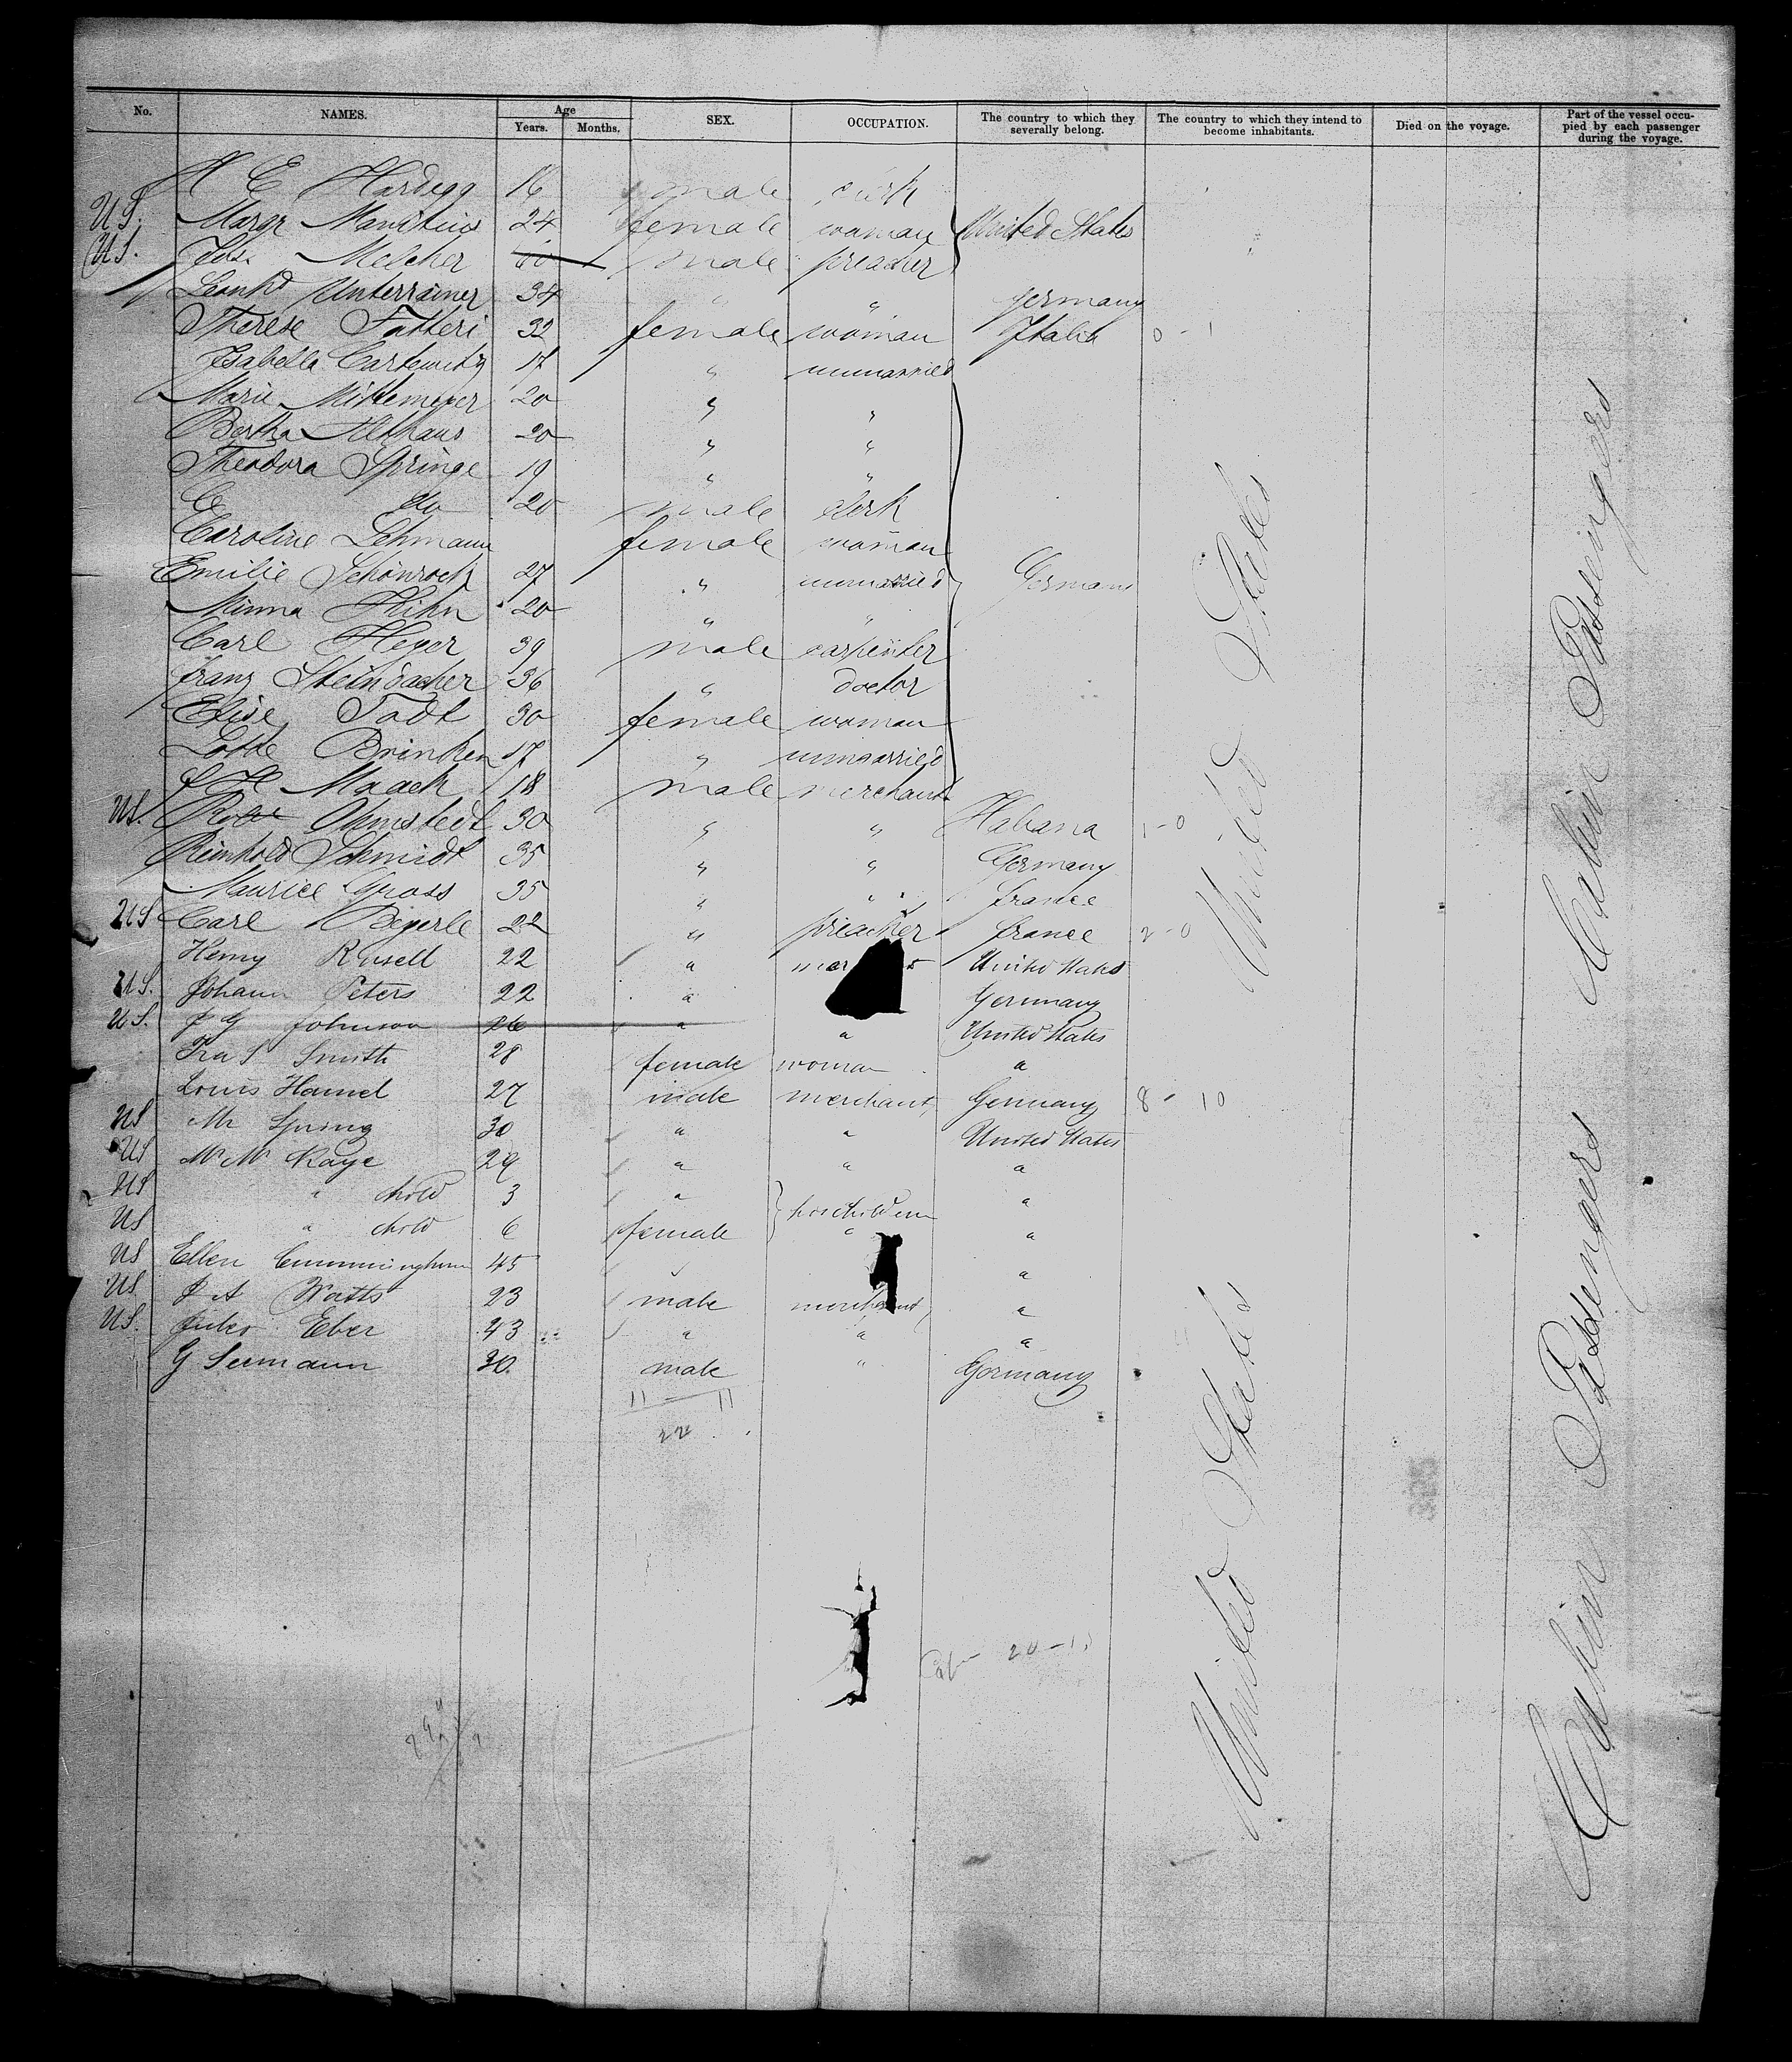 No. NAMES. Age Years. Months. SEX. OCCUPATION. The country to which they severally belong. The country to which they intend to become inhabitants. Died on the voyage. Part of the vessel occupied by each passenger during the voyage.
H E Hardegg 16 male clerk
U S. Margr 24 female woman United States
U S. Melcher male preacher
Unterrainer 34 " " Germany
Therese Fatteri 32 female woman Italia 0 - 1
Isabella 17 " unmarried
Marie Mittemeyer 20 " "
Bertha Althaus 20 " "
Theodora Springe 19 " "
E do 20 male clerk
Caroline Lehmann female woman
Emilie Schönrock 27 " unmarried Germany
Minna Hihn 20 " "
Carl Heyer 39 male carpenter
Franz Steinbacher 36 " doctor
Elise Todt 30 female woman
Lotte Brinken 17 " unmarried
Maack 18 male merchant
US. Ohmstedt 30 " " Habana 1-0
Reinhold Schmidt 35 " " Germany
Maurice Gross 35 " " france
US Carl Beyerle 22 " preacher france 2-0
Henry Rusell 22 " United States
US. Johann Peters 22 " Germany
US. J G Johnson 26 " " United States
Ira S Smith 28 female woman "
Louis Hamel 27 male merchant Germany 8 - 10
US Mr Spring 30 " " United States
US Kaye 29 " " "
US " child 3 " "
US " child 6 female " "
US Ellen Cunningham 45 " "
US J A Watts 23 male merchant "
US. Eber 43 " " "
G Sermann 30 male " Germany
11 - 11
22
20-11
United States
United States
Cabin Passengers
Cabin Passengers